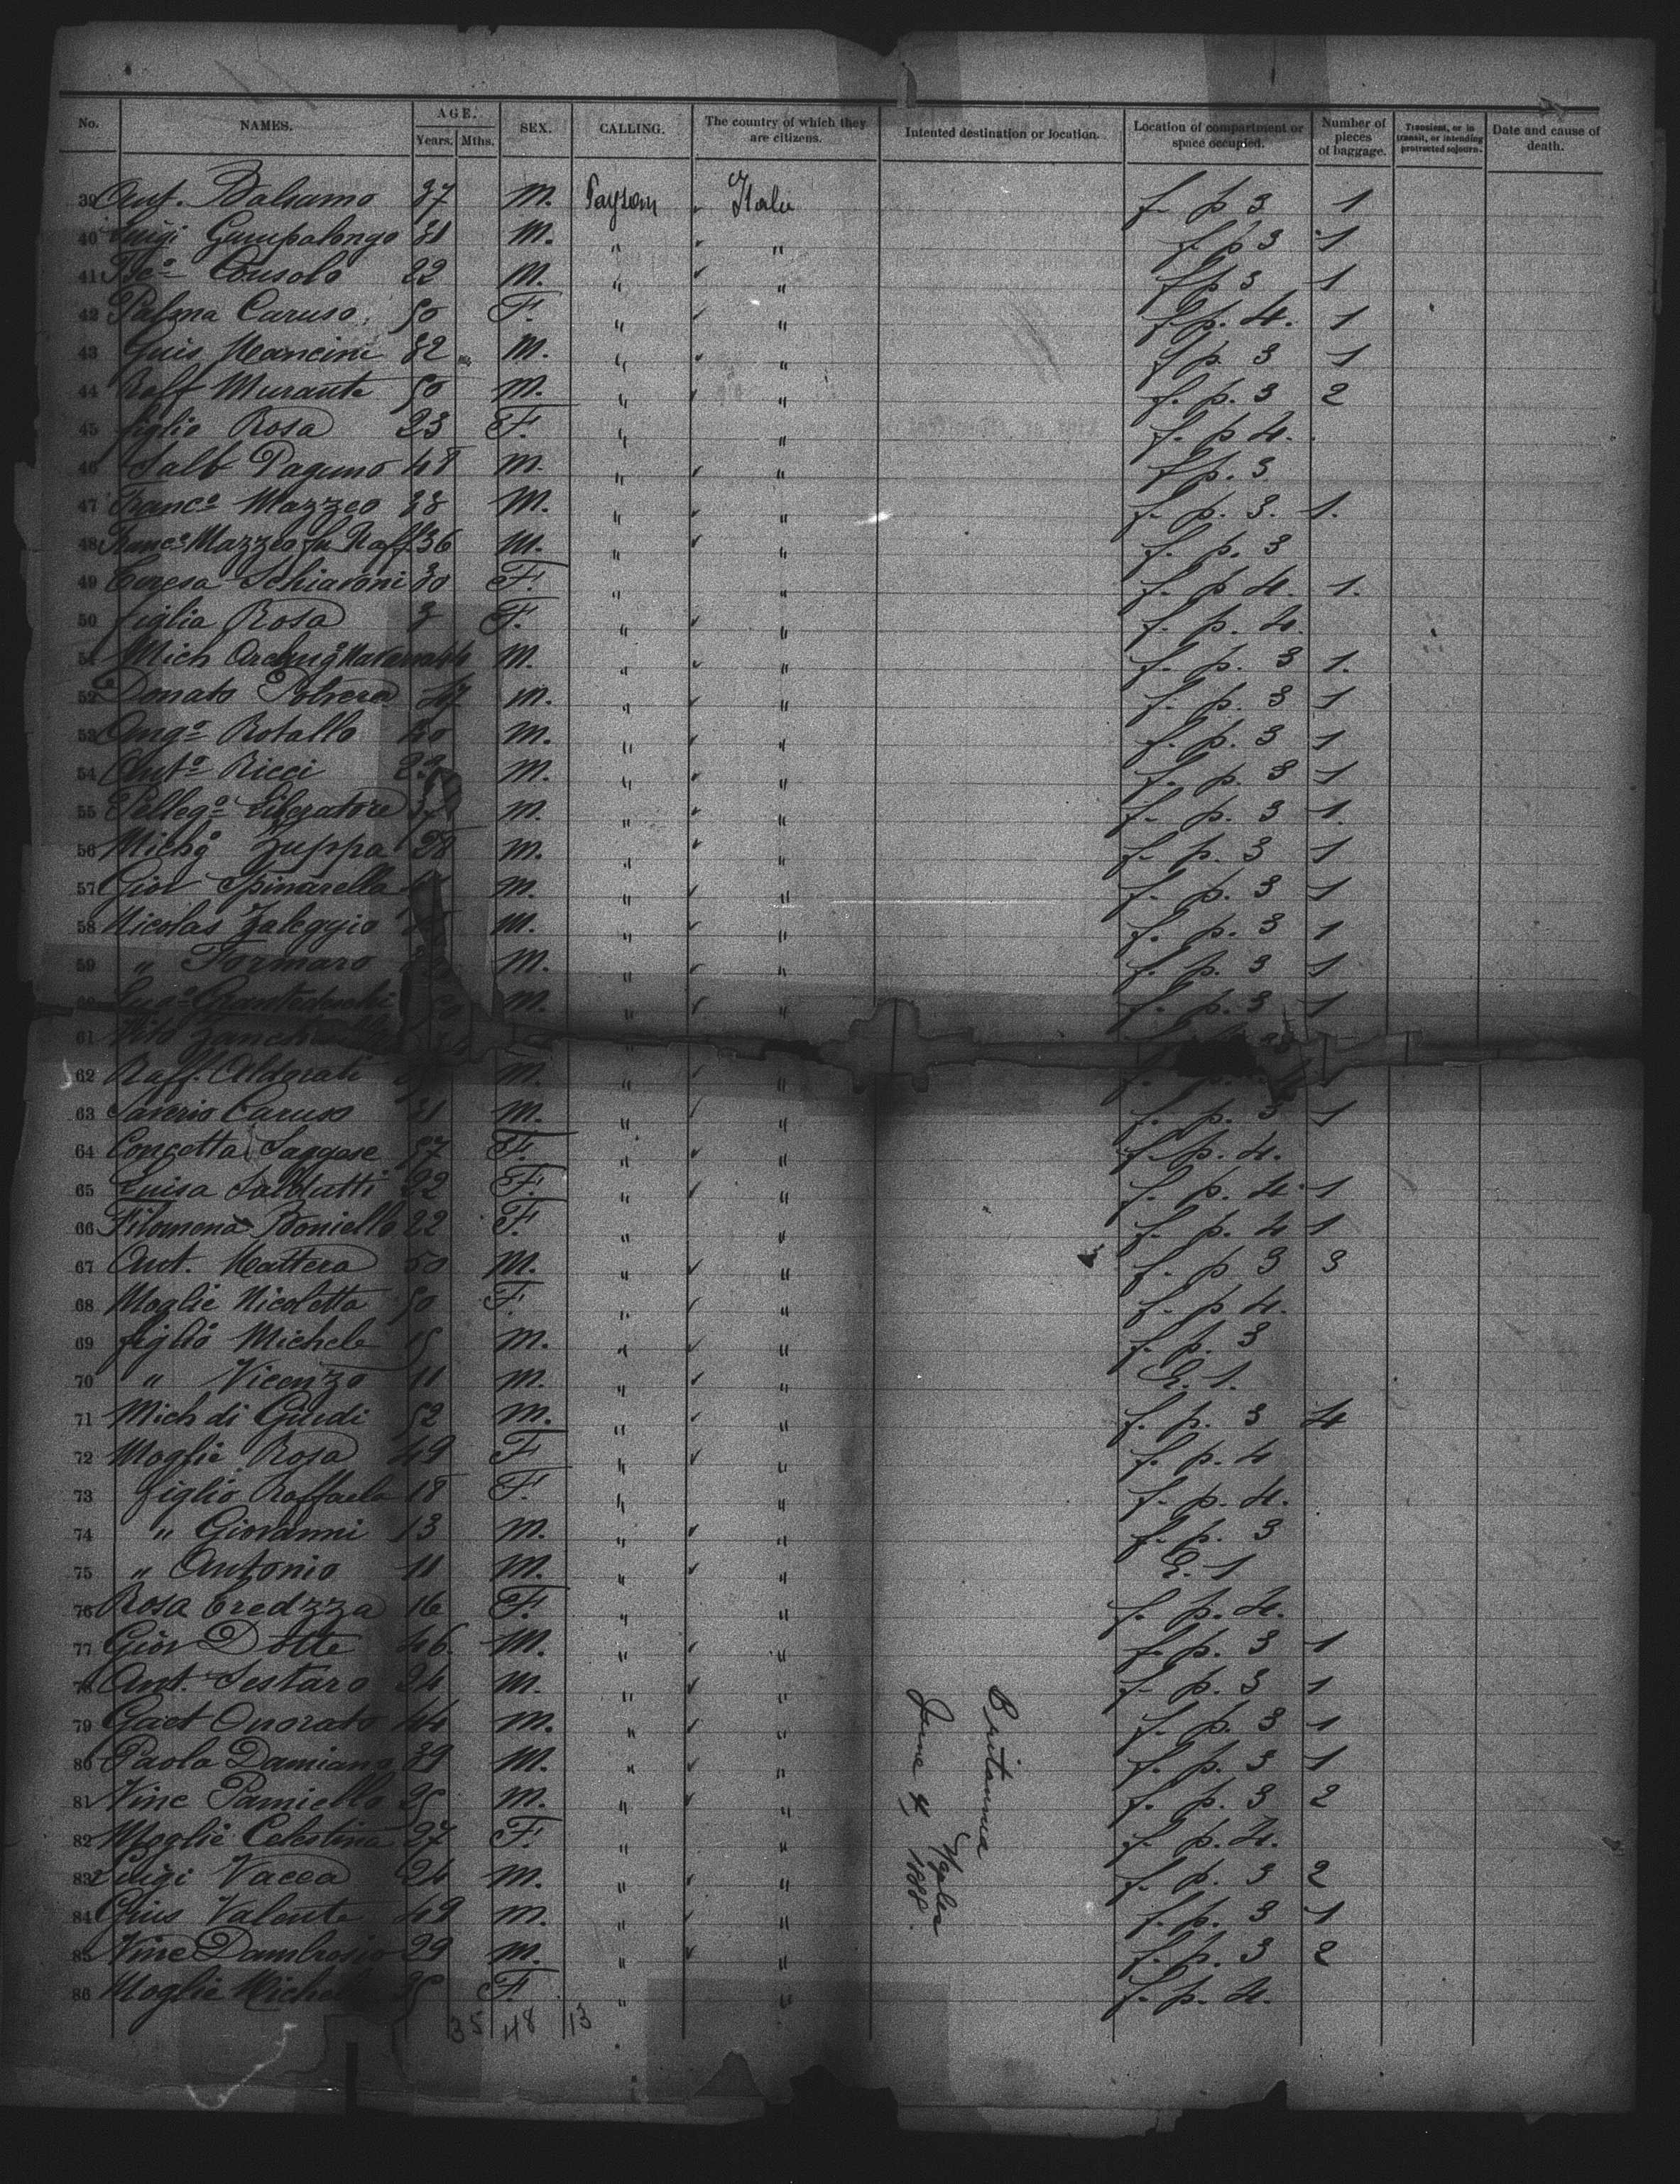 No. NAMES. AGE. Years. Mths. SEX. CALLING. The country of which they are citizens. Intented destination or location. Location of compartment or space occupied. Number of pieces of baggage. Transient, or in transit, or intending protracted sojourn. Date and cause of death.
39 Ant. Balsamo 37 M. Paysan Italie f. p 3 1
40 Luigi Gampolongo 31 M. " " f. p 3 1
41 Fsco Consolo 22 M. " " f p 3 1
42 Palma Caruso 50 F. " " f. p. 4. 1
43 Guis Mancini 32 M. " " f p. 3 1
44 Raff Murante 50 M. " " f. p. 3 2
45 figlio Rosa 23 F. " " f. p 4.
46 Salv Pagano 48 M. " " f p. 3
47 Franco Mazzeo 38 M. " " f. p. 3. 1.
48 Franco Mazzeo fu Raff 36 M. " " f. p. 3
49 Teresa Schiavoni 30 F. " " f. p 4. 1.
50 figlia Rosa 3 F. " " f. p. 4.
51 Mich M. " " f. p. 3 1.
52 Donato 47 M. " " f. p. 3 1
53 Ango Rotallo M. " " f. p. 3 1
54 Anto Ricci M. " " f. p. 3 1
55 Pellego Liberatore M. " " f. p. 3 1.
56 Michg Zuppa 28 M. " " f. p. 3 1
57 Giov Spinarella M. " " f. p. 3 1
58 Nicolas Zaleggio M. " " f. p. 3 1
59 " Formaro M. " " f. p. 3 1
M. " " f. p. 3 1
61 Vito " "
62 Raff. Aldorati M. " "
63 Saverio Caruso 31 M. " " f. p. 3 1
64 Concetta Saggese 57 F. " " f. p. 4.
65 Luisa Saldutti 22 F. " " f. p. 4. 1
66 Filomena Boniello 22 F. " " f. p. 4 1
67 Ant. Mattera 50 M. " " f. p 3 3
68 Moglie Nicoletta 50 F. " " f. p 4.
69 figlio Michele 15 M. " " f. p. 3
70 " Vicenzo 11 M. " " E. 1.
71 Mich di Guidi 52 M. " " f. p. 3 4
72 Moglie Rosa 49 F " " f. p. 4
73 figlio Raffaela 18 F. " " f. p. 4.
74 " Giovanni 13 M. " " f. p. 3
75 " Antonio 11 M. " " E. 1
76 Rosa Credzza 16 F. " " f. p. 4.
77 Giov Dotte 46 M. " " f. p. 3 1
78 Ant. Sestaro 34 M. " " f. p. 3 1
79 Gaet Onorato 44 M. " " f. p. 3 1
80 Paolo Damiano 39 M. " " f. p. 3 1
81 Vinc Pamiello 25 M. " " f. p. 3 2
82 Moglie Celestina 27 F. " " f. p. 4.
83 Luigi Vacca 24 M. " " f. p. 3 2
84 Gius Valente 49 M. " " f. p. 3 1
85 Vinc Dambrosio 29 M. " " f. p. 3 2
86 Moglie 35 F. " " f. p. 4.
35 48 13
Britannia Naples
June 4, 1888.